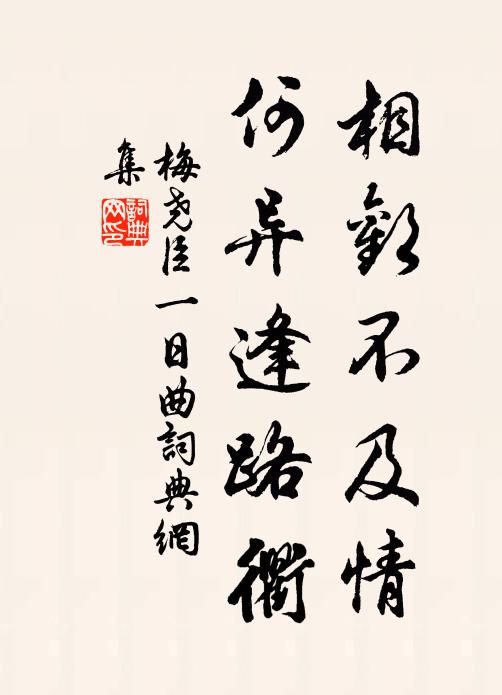 相歡不及情
何异逢路衢
梅尧臣一日曲詞典網
集
詞典
网印